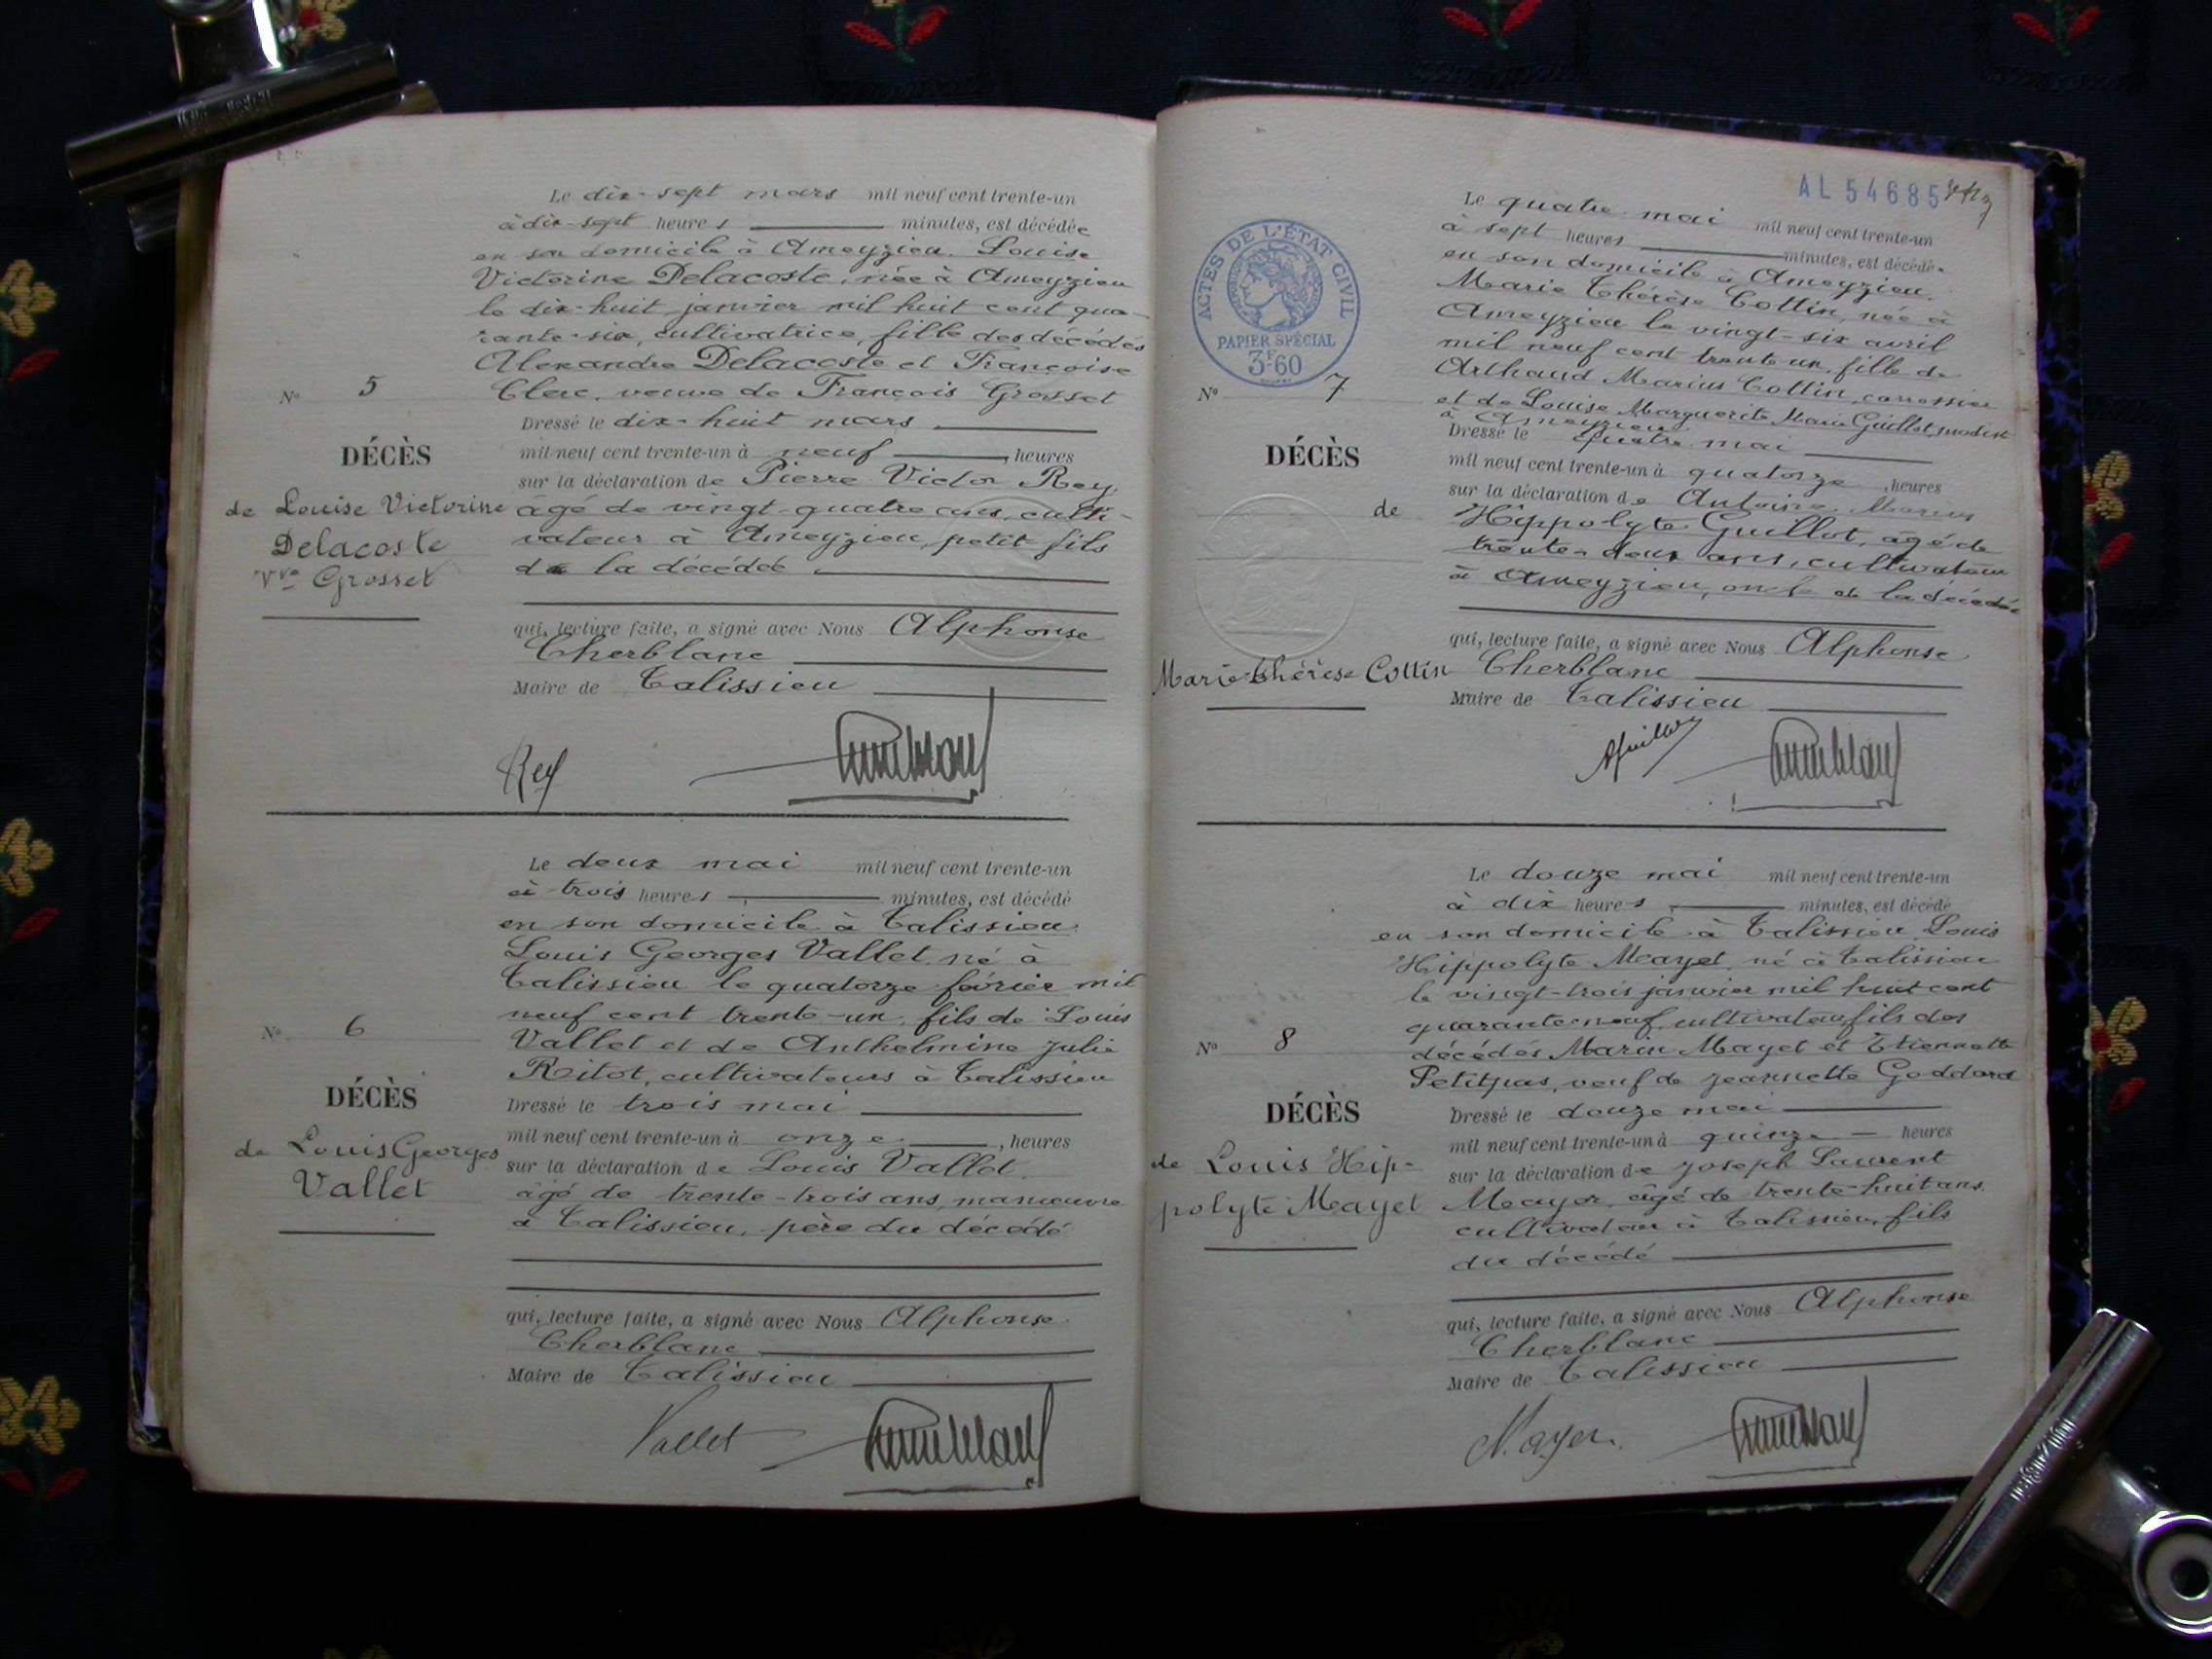 Le dix-sept mars mil neuf cent trente-un
à dix-sept heures minutes, est décédée
en son domicile à Ameyzieu. Louise
Victorine Delacoste, née à Ameyzieu
le dix-huit janvier mil huit cent qua-
rante-six, cultivatrice, fille des décédés
Alexandre Delacoste et Françoise
Clerc, veuve de François Grosset
N° 5
DÉCÈS
de Louise Victorine
Delacoste
Vve Grosset
Dressé le dix-huit mars
mil neuf cent trente-un à neuf, heures
sur la déclaration de Pierre Victor Rey,
âgé de vingt-quatre ans, culti-
vateur à Ameyzieu, petit fils
de la décédée
qui, lecture faite, a signé avec Nous Alphonse
Cherblanc
Maire de Talissieu
Rey
Le deux mai mil neuf cent trente-un
à trois heures minutes, est décédé
en son domicile à Talissieu.
Louis Georges Vallet, né à
Talissieu le quatorze février mil
neuf cent trente-un, fils de Louis
Vallet et de Anthelmine Julie
Ritot, cultivateurs à Talissieu
N° 6
DÉCÈS
de Louis Georges
Vallet
Dressé le trois mai
mil neuf cent trente-un à onze, heures
sur la déclaration de Louis Vallet,
âgé de trente-trois ans, manœuvre
à Talissieu, père du décédé
qui, lecture faite, a signé avec Nous Alphonse
Cherblanc
Maire de Talissieu
Vallet
AL 54685
ACTES DE L'ÉTAT CIVIL
PAPIER SPÉCIAL
3F60
Le quatre mai mil neuf cent trente-un
à sept heures minutes, est décédé
en son domicile à Ameyzieu.
Marie Thérèse Cottin, née à
Ameyzieu le vingt-six avril
mil neuf cent trente-un, fille de
Arthaud Marius Cottin, carrossier
et de Louise Marguerite Marie Guillot, modiste
à Ameyzieu
N° 7
DÉCÈS
de
Marie-Thérèse Cottin
Dressé le quatre mai
mil neuf cent trente-un à quatorze, heures
sur la déclaration de Antoine Marius
Hippolyte Guillot, âgé de
trente-deux ans, cultivateur
à Ameyzieu, oncle de la décédée
qui, lecture faite, a signé avec Nous Alphonse
Cherblanc
Maire de Talissieu
Le douze mai mil neuf cent trente-un
à dix heures minutes, est décédé
en son domicile à Talissieu, Louis
Hippolyte Mayet, né à Talissieu
le vingt-trois janvier mil huit cent
quarante-neuf, cultivateur, fils des
décédés Marin Mayet et Etiennette
Petitpas, veuf de Jeannette Goddard
N° 8
DÉCÈS
de Louis Hip-
polyte Mayet
Dressé le douze mai
mil neuf cent trente-un à quinze heures
sur la déclaration de Joseph Laurent
Mayer, âgé de trente-huit ans,
cultivateur à Talissieu, fils
du décédé
qui, lecture faite, a signé avec Nous Alphonse
Cherblanc
Maire de Talissieu
Mayer